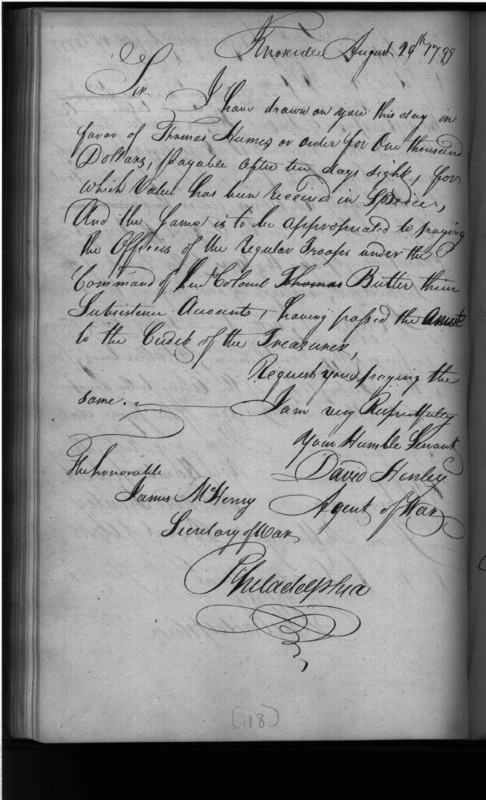 Knoxville August 29th 1799
Sir. I have drawn on you this day in
favor of Thomas Humes or order for One thousand
Dollars, payable after ten days sight, for
which Value has been received in Specie,
And the same is to be appropriated to paying
the Officers of the Regular Troops under the
Command of Lieut Colonel Thomas Butler their
Subsistence Accounts, having passed the Amount
to the Credit of the Treasurer,
Request your paying the
same. I am very Respectfully
Your Humble Servant
The honorable David Henley
James McHenry Agent of War
Secretary of War
Philadelphia
(118)